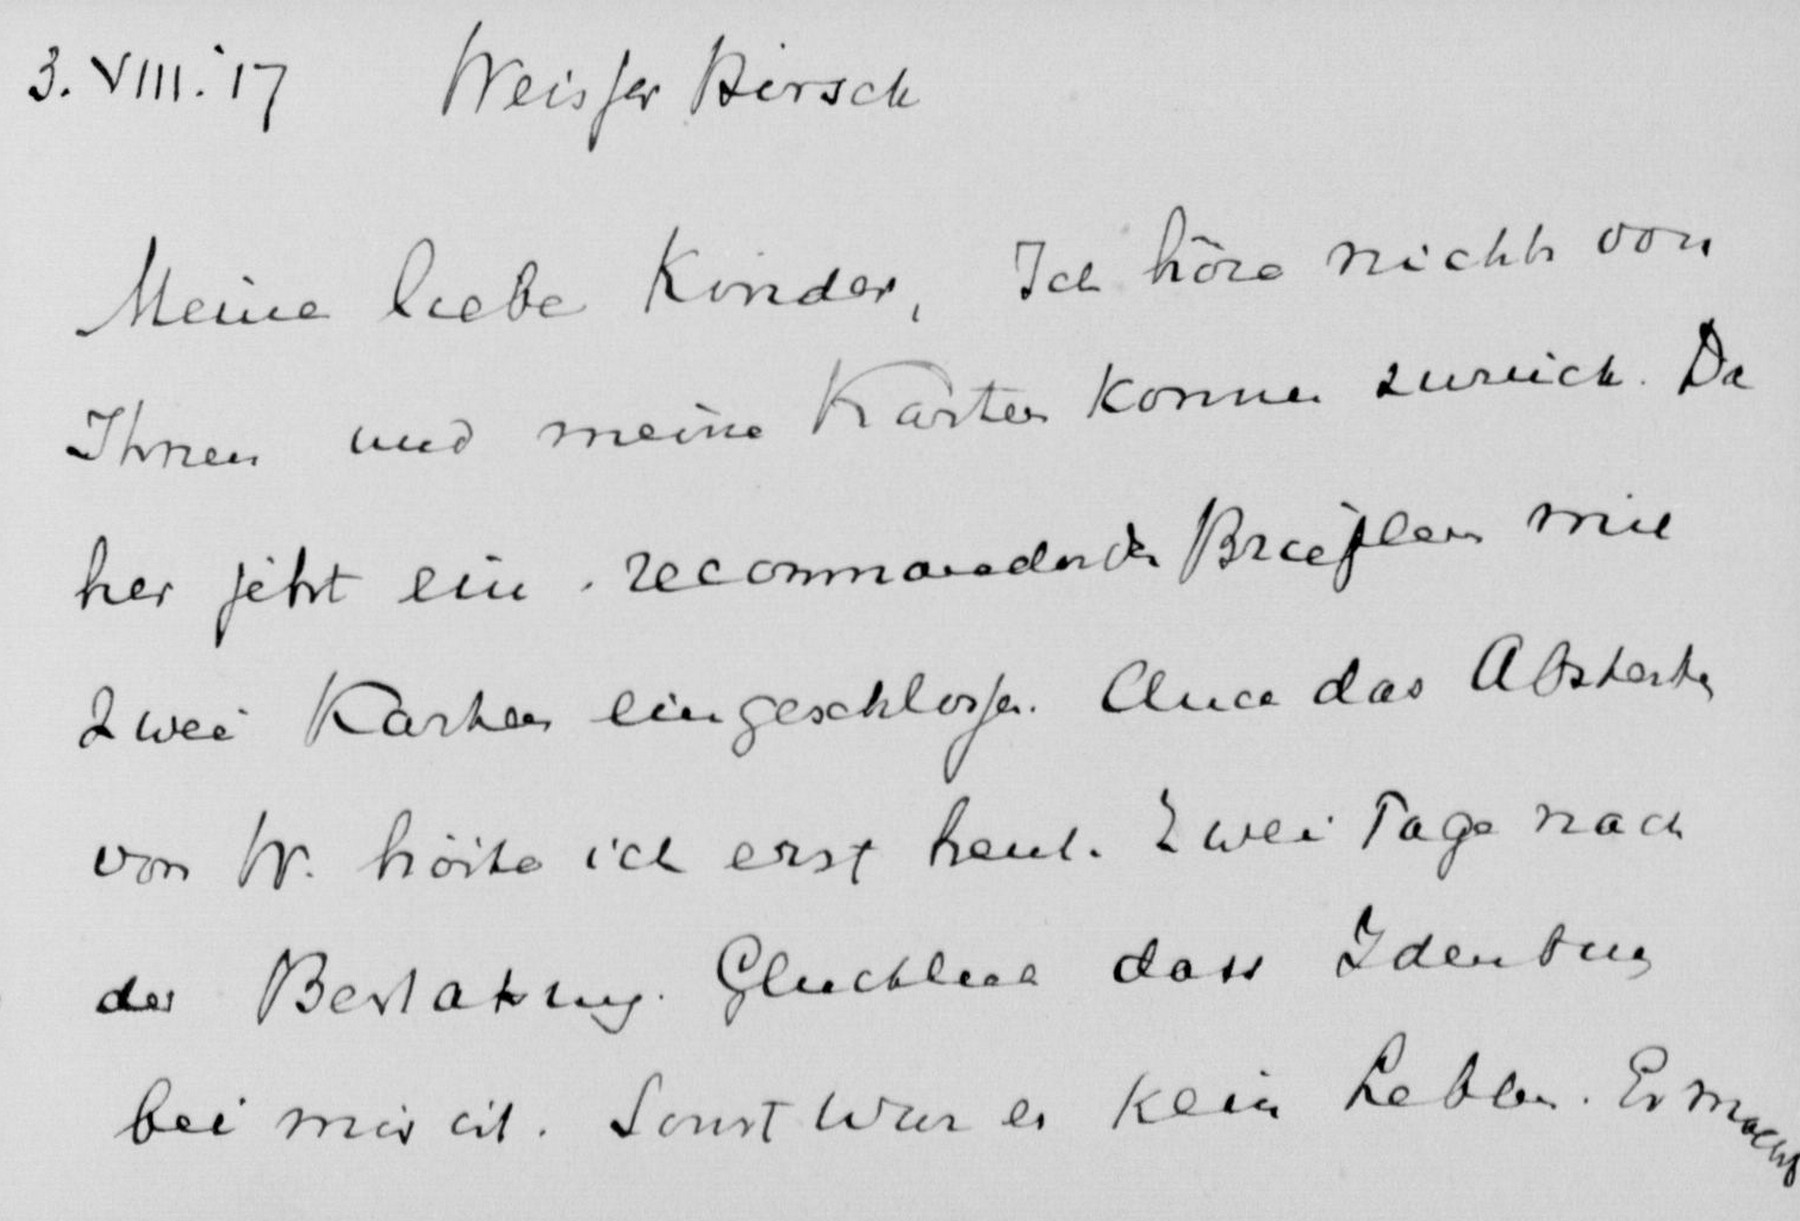 3. VIII. '17 Weisser Hirsch
Meine liebe Kinder, Ich höre nichts von
Ihnen und meine Karten kommen zurück. Da
her jetzt ein recommandirten Brieflein mit
zwei Karten eingeschlossen. Auch das Absterben
von W. hörte ich erst heut. Zwei Tage nach
der Bestattung. Glücklich dass Idenburg
bei mir ist. Sonst war es kein Leben. Er macht